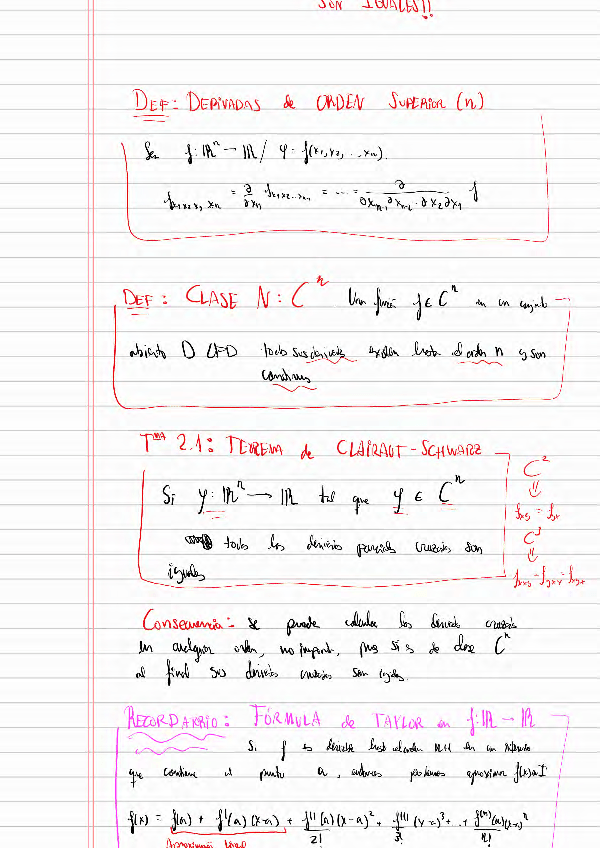 SON IGUALES!!
DEF: DERIVADAS de ORDEN SUPERIOR (n)
Sea f: ℝⁿ → ℝ / y = f(x₁, x₂, ..., xₙ).
= ∂/∂xₙ = ... = ∂ / ∂xₙ ∂xₙ₋₁ · ∂x₂ ∂x₁ f
DEF: CLASE N: Cⁿ Una función f ∈ Cⁿ en un conjunto
abierto D todas sus derivadas existen hasta el orden n y son
continuas
Tᵐᵃ 2.1: TEOREMA de CLAIRAUT-SCHWARZ
Si y: ℝⁿ → ℝ tal que y ∈ Cⁿ
todas las derivadas parciales cruzadas son
iguales
C²
⇓
fxy = fyx
C³
⇓
fxxy = fyxx = fxyx
Consecuencia: se puede calcular las derivadas cruzadas
en cualquier orden, no importa, pues si es de clase Cⁿ
al final sus derivadas cruzadas son iguales.
RECORDATORIO: FÓRMULA de TAYLOR en f: ℝ → ℝ
Si f es derivable hasta el orden n+1 en un intervalo
que contiene el punto a, entonces podemos aproximar f(x)
f(x) = f(a) + f'(a)(x-a) + f''(a)(x-a)²/2! + f'''(x-a)³/3! + ... + f⁽ⁿ⁾(a)(x-a)ⁿ/n!